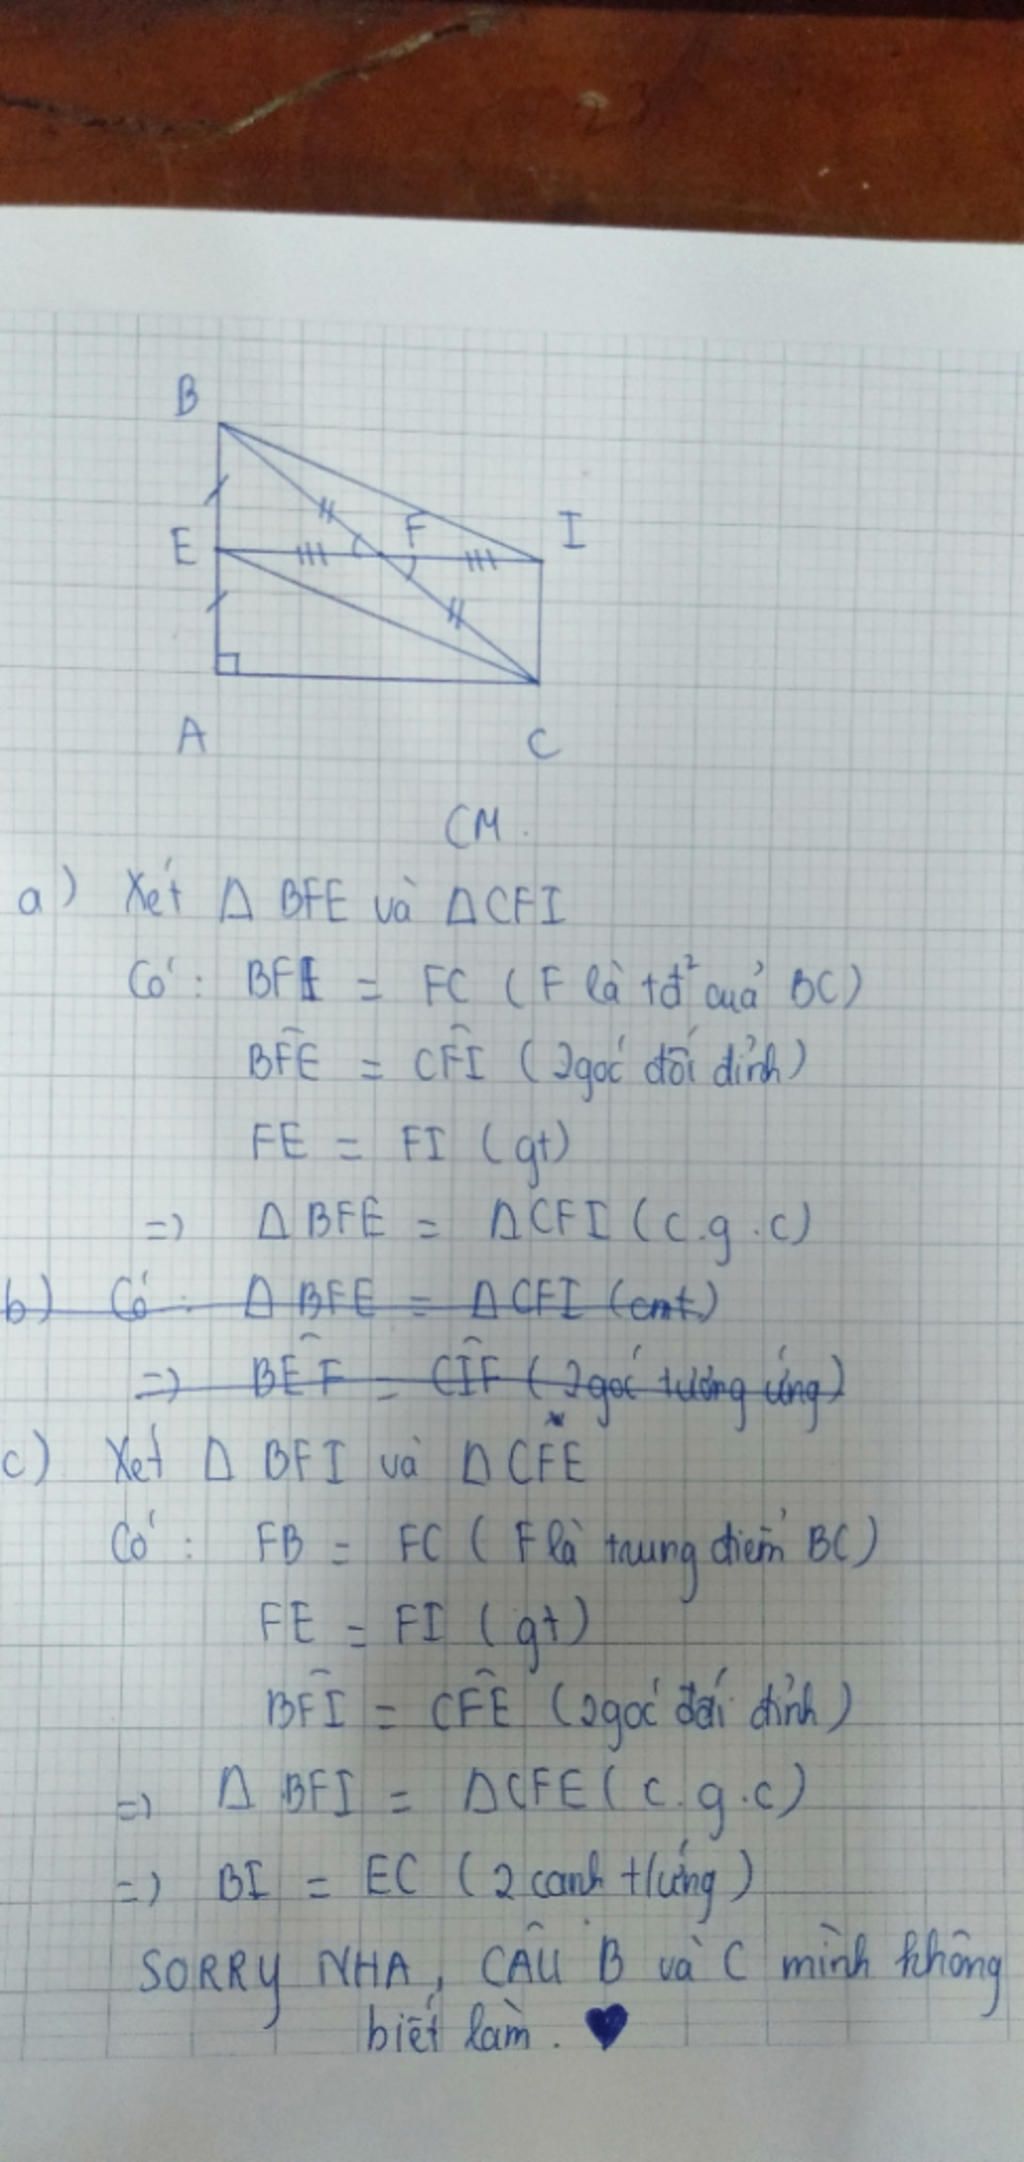 B
E
F
I
A
C
CM.
a) Xét Δ BFE và ΔCFI
Có: BFE = FC (F là tđ² của BC)
BF̂E = CF̂I (2góc đối đỉnh)
FE = FI (gt)
=) Δ BFE = ΔCFI (c.g.c)
b) Có: Δ BFE = ΔCFI (cmt)
=) BÊF = CÎF (2góc tương ứng)
c) Xét Δ BFI và ΔCFE
Có: FB = FC (F là trung điểm BC)
FE = FI (gt)
BF̂I = CF̂E (2góc đối đỉnh)
=) Δ BFI = ΔCFE (c.g.c)
=) BI = EC (2 cạnh t/ứng)
SORRY NHA, CÂU B và C mình không
biết làm. ♥